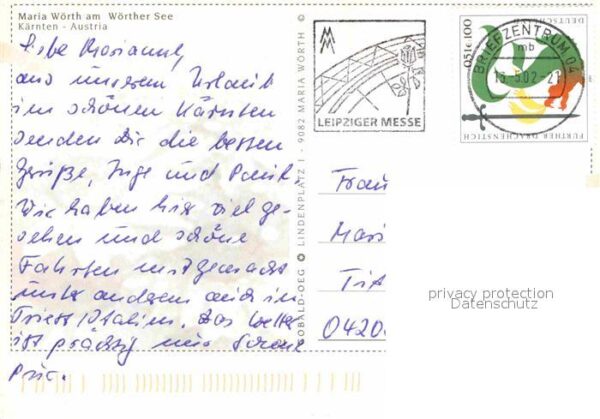 Maria Wörth am Wörther See
Kärnten - Austria
Liebe Marianne,
aus unserem Urlaub
im schönen Kärnten
senden Dir die besten
Grüße, Inge und
Wir haben hier viel ge-
sehen und schöne
Fahrten mitgemacht
unter anderem auch in
Triest/Italien. Das Wetter
ist prächtig nur Sonne
pur.
LINDENPLATZ 1 · 9082 MARIA WÖRTH ©
OBALD-OEG
LEIPZIGER MESSE
BRIEFZENTRUM 04
mb
.5.02-21
0,51€ 100
DEUTSCH
FURTHER DRACHENSTICH
Frau
Mari
0420
privacy protection
Datenschutz